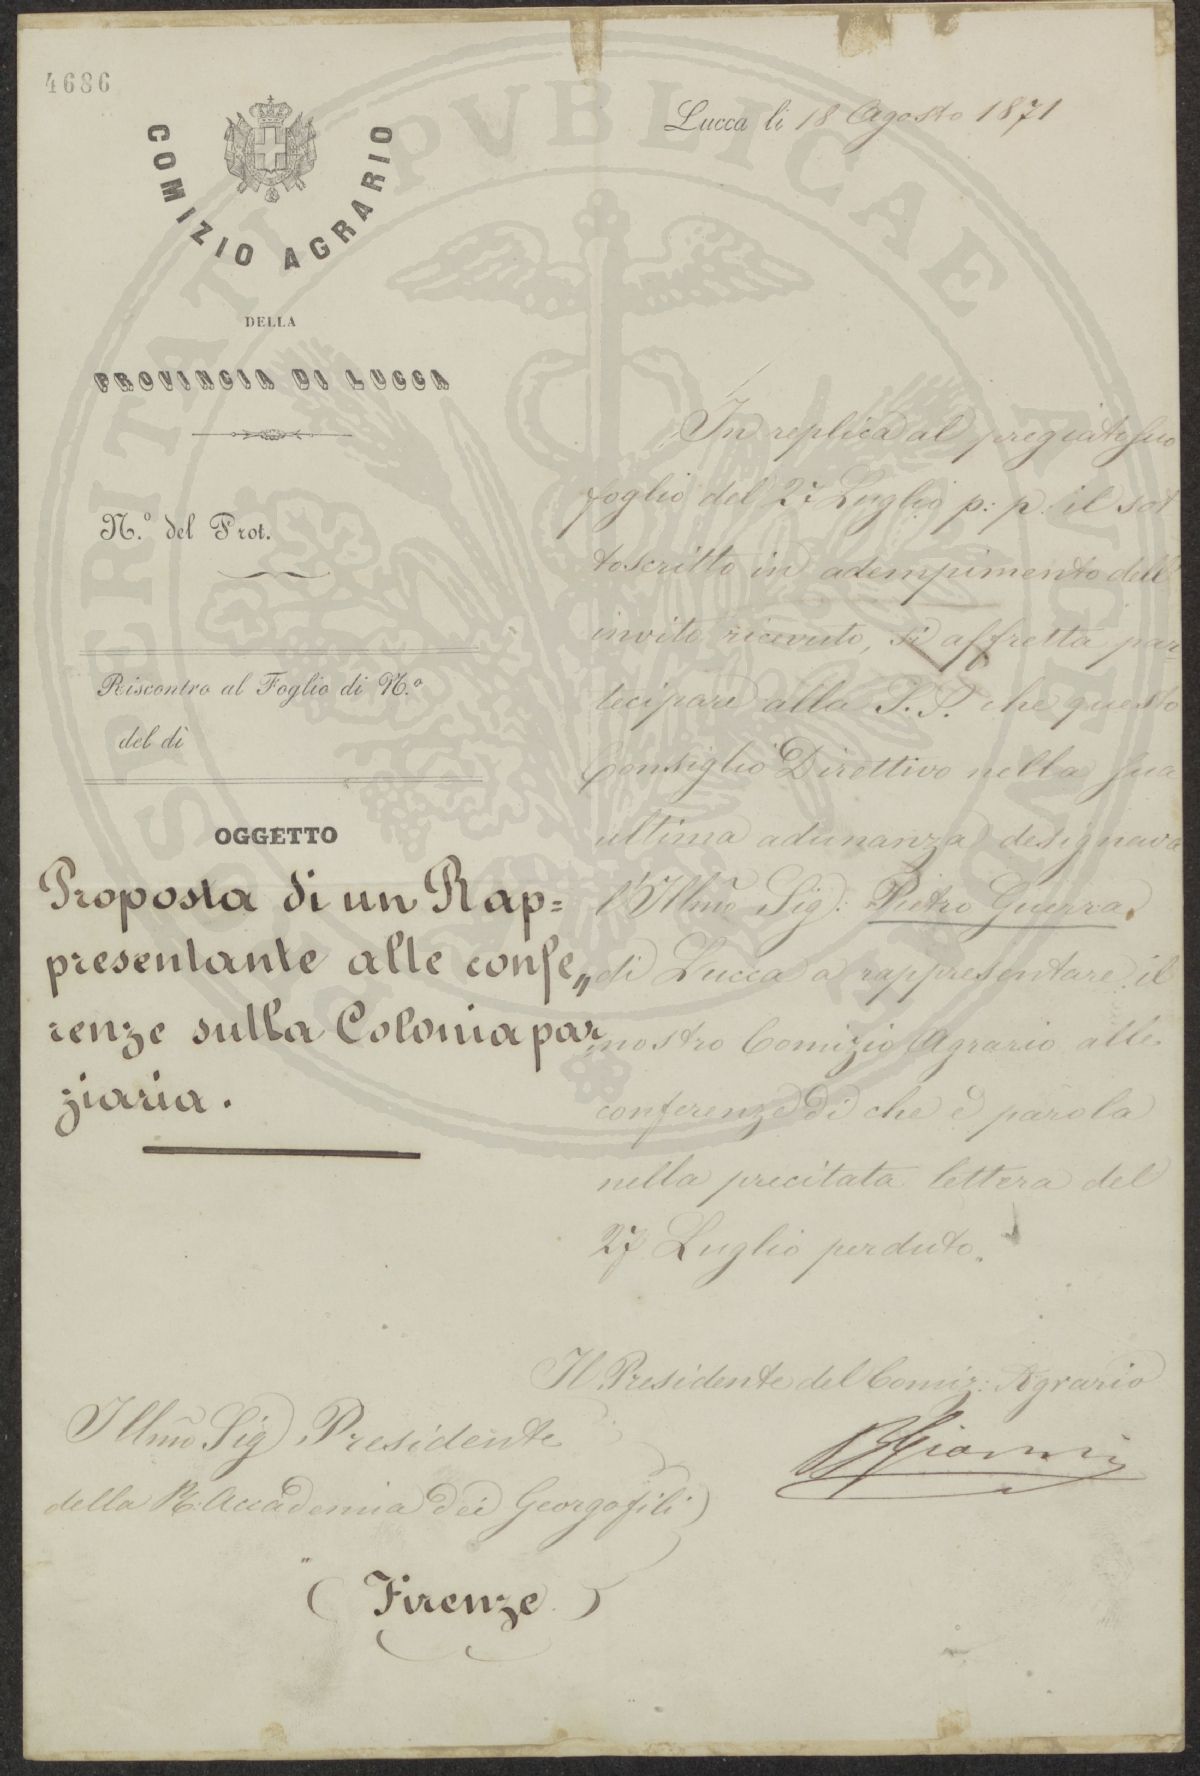 4686
COMIZIO AGRARIO
DELLA
PROVINCIA DI LUCCA
Lucca li 18 Agosto 1871
N.° del Prot.
Riscontro al Foglio di N.°
del dì
OGGETTO
Proposta di un Rap=
presentante alle confe„
renze sulla Colonia par
ziaria.
In replica al pregiato suo
foglio del 27 Luglio p: p. il sot
toscritto in adempimento dell'
invito ricevuto, si affretta par-
tecipare alla S.S. che questo
Consiglio Direttivo nella sua
ultima adunanza designava
l'Illmo Sig: Pietro Guerra
di Lucca a rappresentare il
nostro Comizio Agrario alle
conferenze di che è parola
nella precitata lettera del
27 Luglio perduto.
Il Presidente del Comiz: Agrario
Illmo Sig Presidente
della R. Accademia dei Georgofili
(Firenze)
PROSPERITATI PVBLICAE AVGENDAE